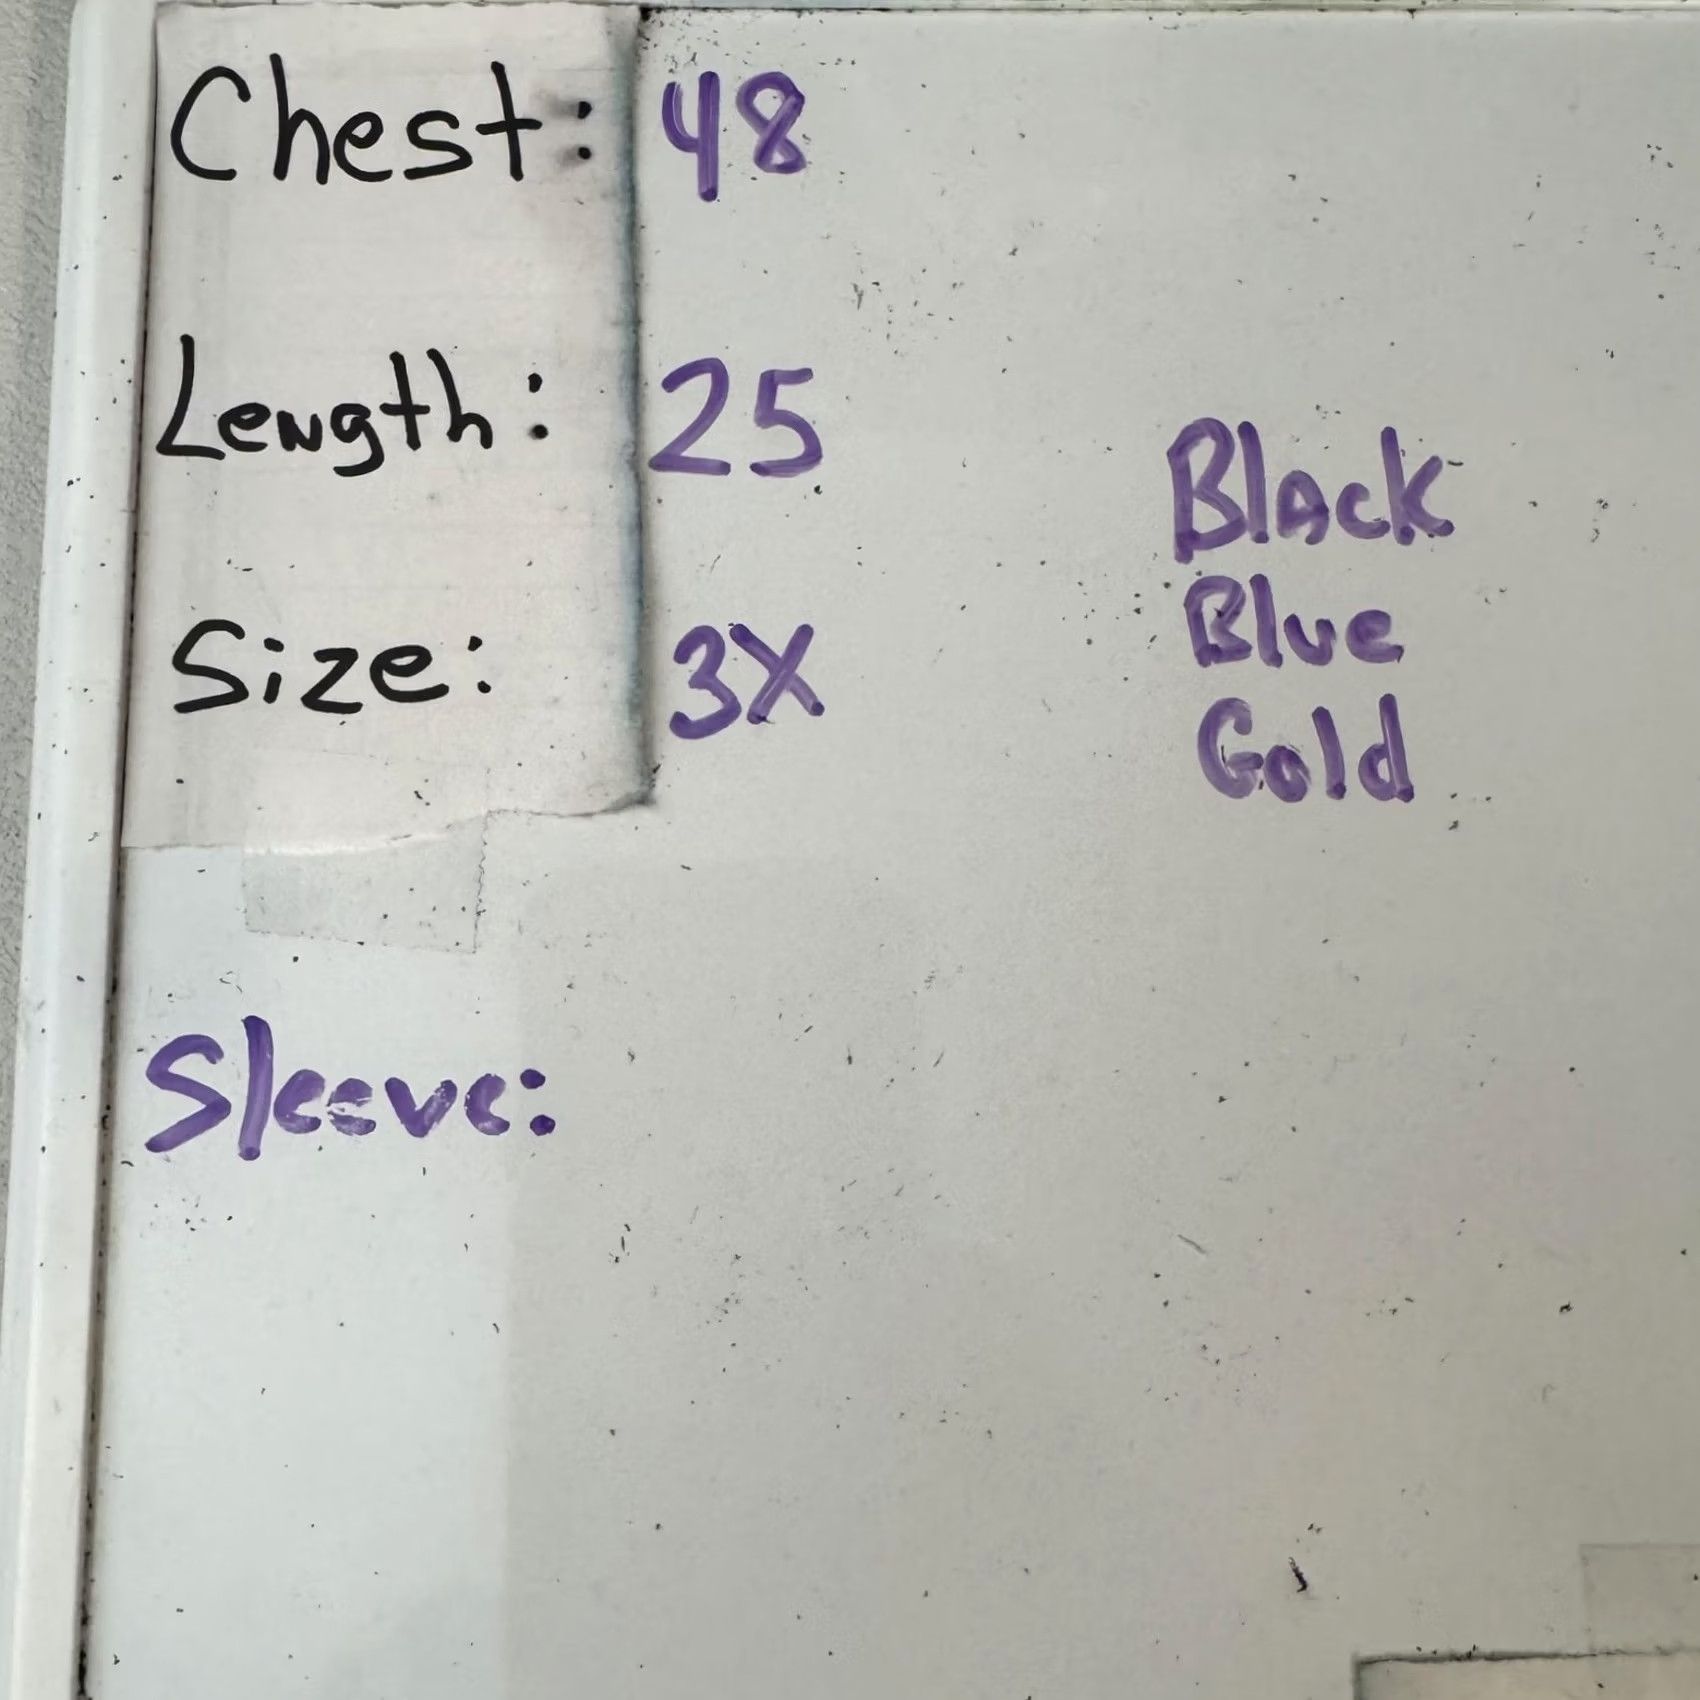 Chest: 48
Length: 25
Size: 3X
Black
Blue
Gold
Sleeve: